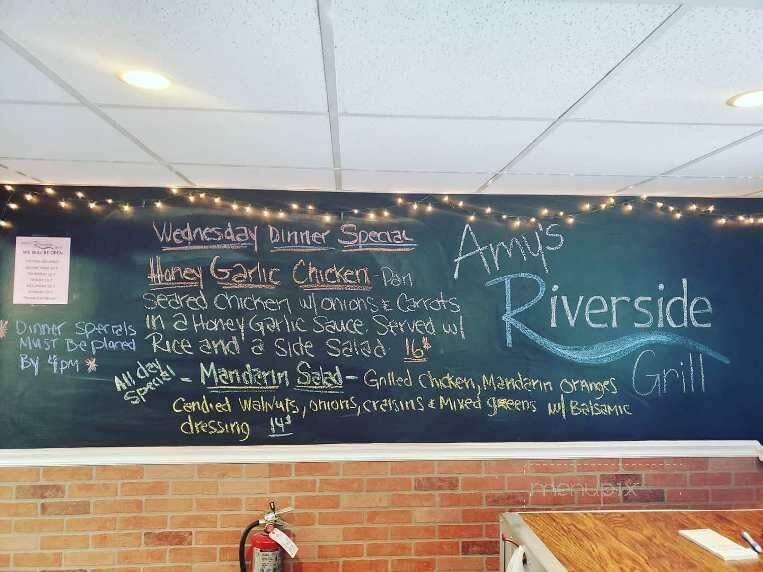 Wednesday Dinner Special
Honey Garlic Chicken - Pan
Seared chicken w/onions & Carrots
in a Honey Garlic Sauce. Served w/
Rice and a side Salad. 16
* Dinner Specials
Must Be placed
By 4pm *
All day
Special
- Mandarin Salad - Grilled Chicken, Mandarin oranges
Candied Walnuts, onions, craisins & Mixed greens w/ Balsamic
dressing 14
Amy's
Riverside
Grill
menupix